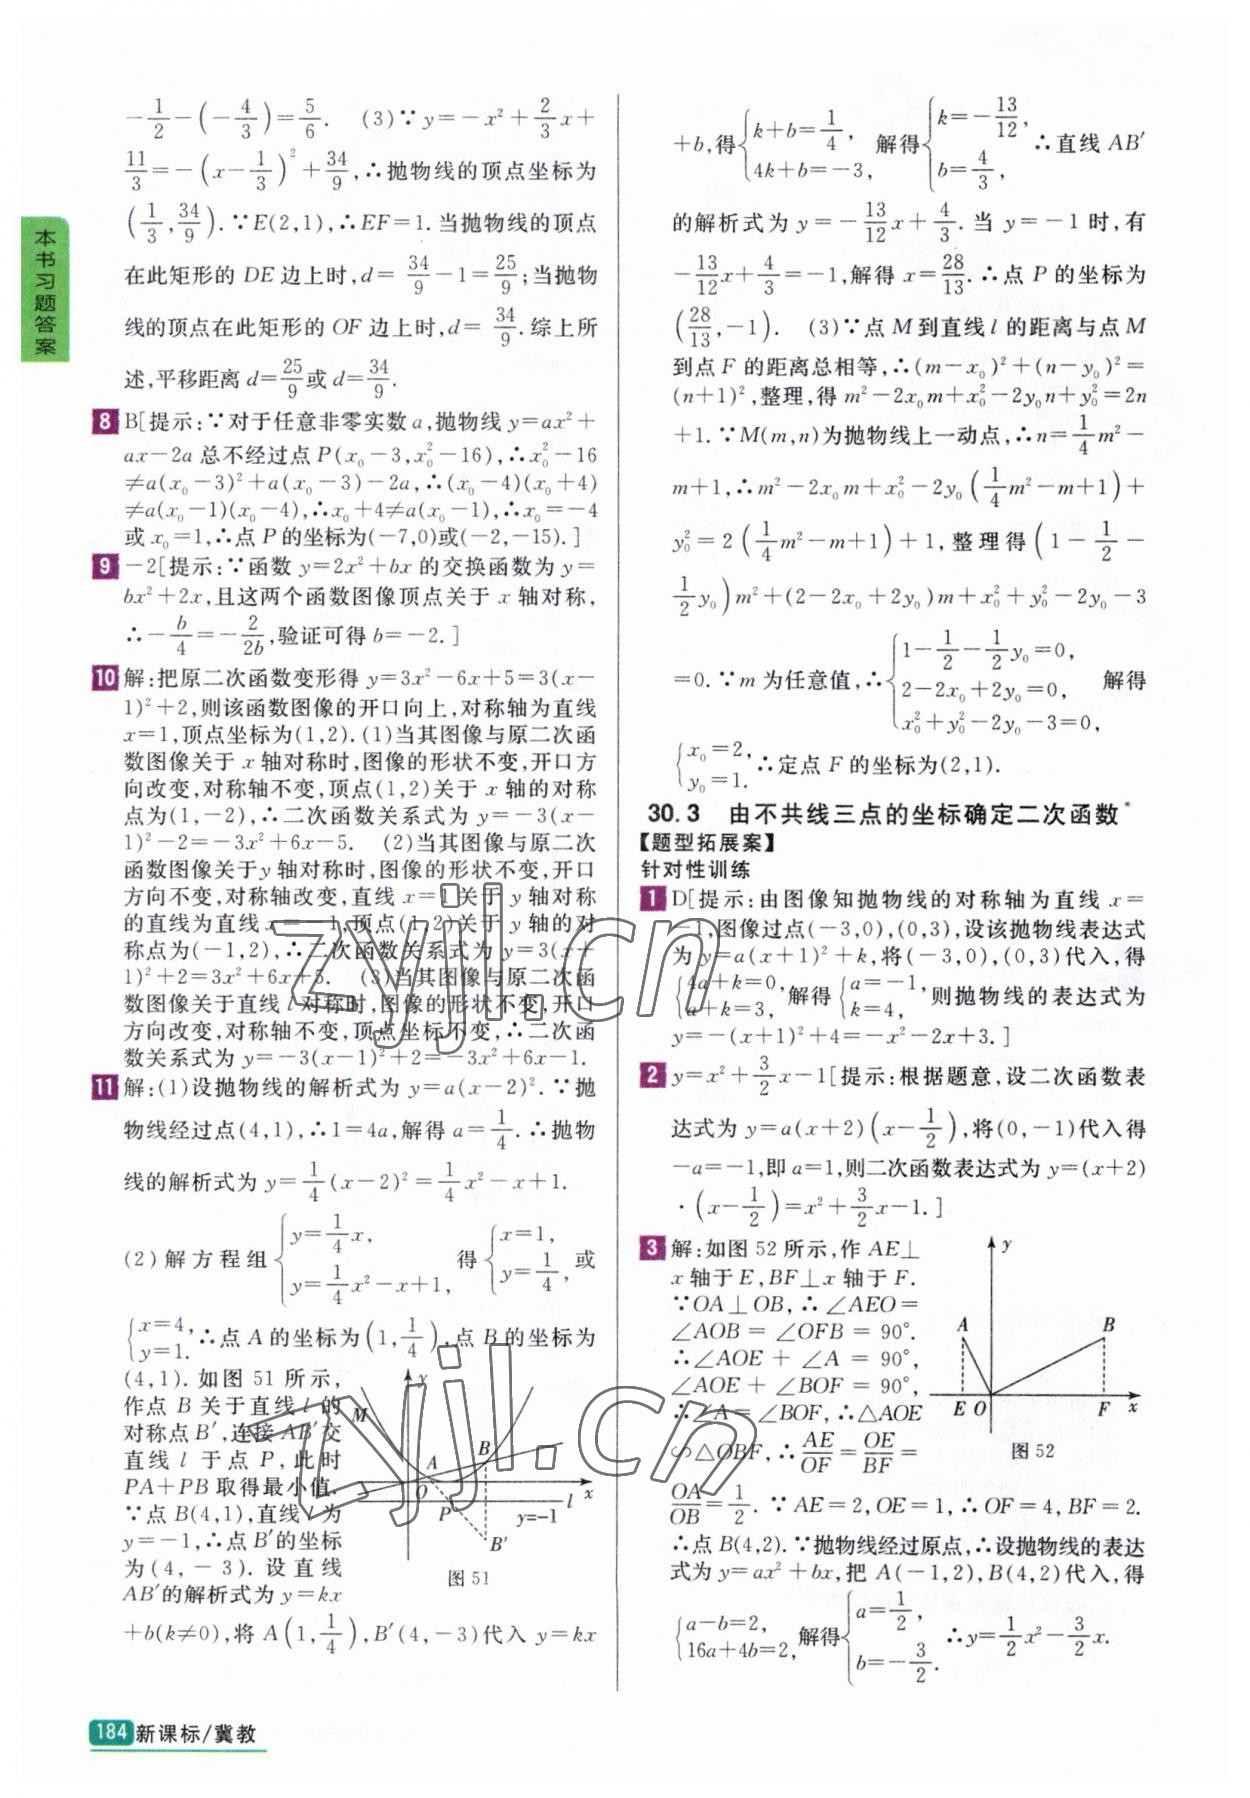 本书习题答案
-1/2-(-4/3)=5/6. (3)∵y=-x²+2/3x+
11/3=-(x-1/3)²+34/9,∴抛物线的顶点坐标为
(1/3,34/9).∵E(2,1),∴EF=1.当抛物线的顶点
在此矩形的 DE 边上时,d=34/9-1=25/9;当抛物
线的顶点在此矩形的 OF 边上时,d=34/9.综上所
述,平移距离 d=25/9或 d=34/9.
8 B[提示:∵对于任意非零实数 a,抛物线 y=ax²+
ax-2a 总不经过点 P(x₀-3,x₀²-16),∴x₀²-16
≠a(x₀-3)²+a(x₀-3)-2a,∴(x₀-4)(x₀+4)
≠a(x₀-1)(x₀-4),∴x₀+4≠a(x₀-1),∴x₀=-4
或 x₀=1,∴点 P 的坐标为(-7,0)或(-2,-15).]
9 -2[提示:∵函数 y=2x²+bx 的交换函数为 y=
bx²+2x,且这两个函数图像顶点关于 x 轴对称,
∴-b/4=-2/2b,验证可得 b=-2.]
10 解:把原二次函数变形得 y=3x²-6x+5=3(x-
1)²+2,则该函数图像的开口向上,对称轴为直线
x=1,顶点坐标为(1,2).(1)当其图像与原二次函
数图像关于 x 轴对称时,图像的形状不变,开口方
向改变,对称轴不变,顶点(1,2)关于 x 轴的对称
点为(1,-2),∴二次函数关系式为 y=-3(x-
1)²-2=-3x²+6x-5. (2)当其图像与原二次
函数图像关于y 轴对称时,图像的形状不变,开口
方向不变,对称轴改变,直线 x=1 关于 y 轴对称
的直线为直线 x=-1,顶点(1,2)关于 y 轴的对
称点为(-1,2),∴二次函数关系式为 y=3(x+
1)²+2=3x²+6x+5. (3)当其图像与原二次函
数图像关于直线 l 对称时,图像的形状不变,开口
方向改变,对称轴不变,顶点坐标不变,∴二次函
数关系式为 y=-3(x-1)²+2=-3x²+6x-1.
11 解:(1)设抛物线的解析式为 y=a(x-2)².∵抛
物线经过点(4,1),∴1=4a,解得 a=1/4.∴抛物
线的解析式为 y=1/4(x-2)²=1/4x²-x+1.
(2)解方程组{y=1/4x, y=1/4x²-x+1, 得{x=1, y=1/4, 或
{x=4, y=1. ∴点 A 的坐标为(1,1/4),点 B 的坐标为
(4,1).如图 51 所示,
作点 B 关于直线 l 的
对称点 B′,连接 AB′交
直线 l 于点 P,此时
PA+PB 取得最小值.
∵点 B(4,1),直线 l 为
y=-1,∴点 B′的坐标
为(4,-3).设直线
AB′的解析式为 y=kx
M y A B O x P y=-1 l B′
图 51
+b(k≠0),将 A(1,1/4),B′(4,-3)代入 y=kx
+b,得{k+b=1/4, 4k+b=-3, 解得{k=-13/12, b=4/3, ∴直线 AB′
的解析式为 y=-13/12x+4/3.当 y=-1 时,有
-13/12x+4/3=-1,解得 x=28/13.∴点 P 的坐标为
(28/13,-1). (3)∵点 M 到直线 l 的距离与点 M
到点 F 的距离总相等,∴(m-x₀)²+(n-y₀)²=
(n+1)²,整理,得 m²-2x₀m+x₀²-2y₀n+y₀²=2n
+1.∵M(m,n)为抛物线上一动点,∴n=1/4m²-
m+1,∴m²-2x₀m+x₀²-2y₀(1/4m²-m+1)+
y₀²=2(1/4m²-m+1)+1,整理得(1-1/2-
1/2y₀)m²+(2-2x₀+2y₀)m+x₀²+y₀²-2y₀-3
=0.∵m 为任意值,∴{1-1/2-1/2y₀=0, 2-2x₀+2y₀=0, x₀²+y₀²-2y₀-3=0, 解得
{x₀=2, y₀=1. ∴定点 F 的坐标为(2,1).
30.3 由不共线三点的坐标确定二次函数*
【题型拓展案】
针对性训练
1 D[提示:由图像知抛物线的对称轴为直线 x=
-1,图像过点(-3,0),(0,3),设该抛物线表达式
为 y=a(x+1)²+k,将(-3,0),(0,3)代入,得
{4a+k=0, a+k=3, 解得{a=-1, k=4, 则抛物线的表达式为
y=-(x+1)²+4=-x²-2x+3.]
2 y=x²+3/2x-1[提示:根据题意,设二次函数表
达式为 y=a(x+2)(x-1/2),将(0,-1)代入得
-a=-1,即 a=1,则二次函数表达式为 y=(x+2)
·(x-1/2)=x²+3/2x-1.]
3 解:如图 52 所示,作 AE⊥
x 轴于 E,BF⊥x 轴于 F.
∵OA⊥OB,∴∠AEO=
∠AOB=∠OFB=90°.
∴∠AOE+∠A=90°,
∠AOE+∠BOF=90°,
∴∠A=∠BOF,∴△AOE
∽△OBF,∴AE/OF=OE/BF=
y A B E O F x
图 52
OA/OB=1/2.∵AE=2,OE=1,∴OF=4,BF=2.
∴点 B(4,2).∵抛物线经过原点,∴设抛物线的表达
式为 y=ax²+bx,把 A(-1,2),B(4,2)代入,得
{a-b=2, 16a+4b=2, 解得{a=1/2, b=-3/2. ∴y=1/2x²-3/2x.
184 新课标/冀教
zyjl.cn
zyjl.cn